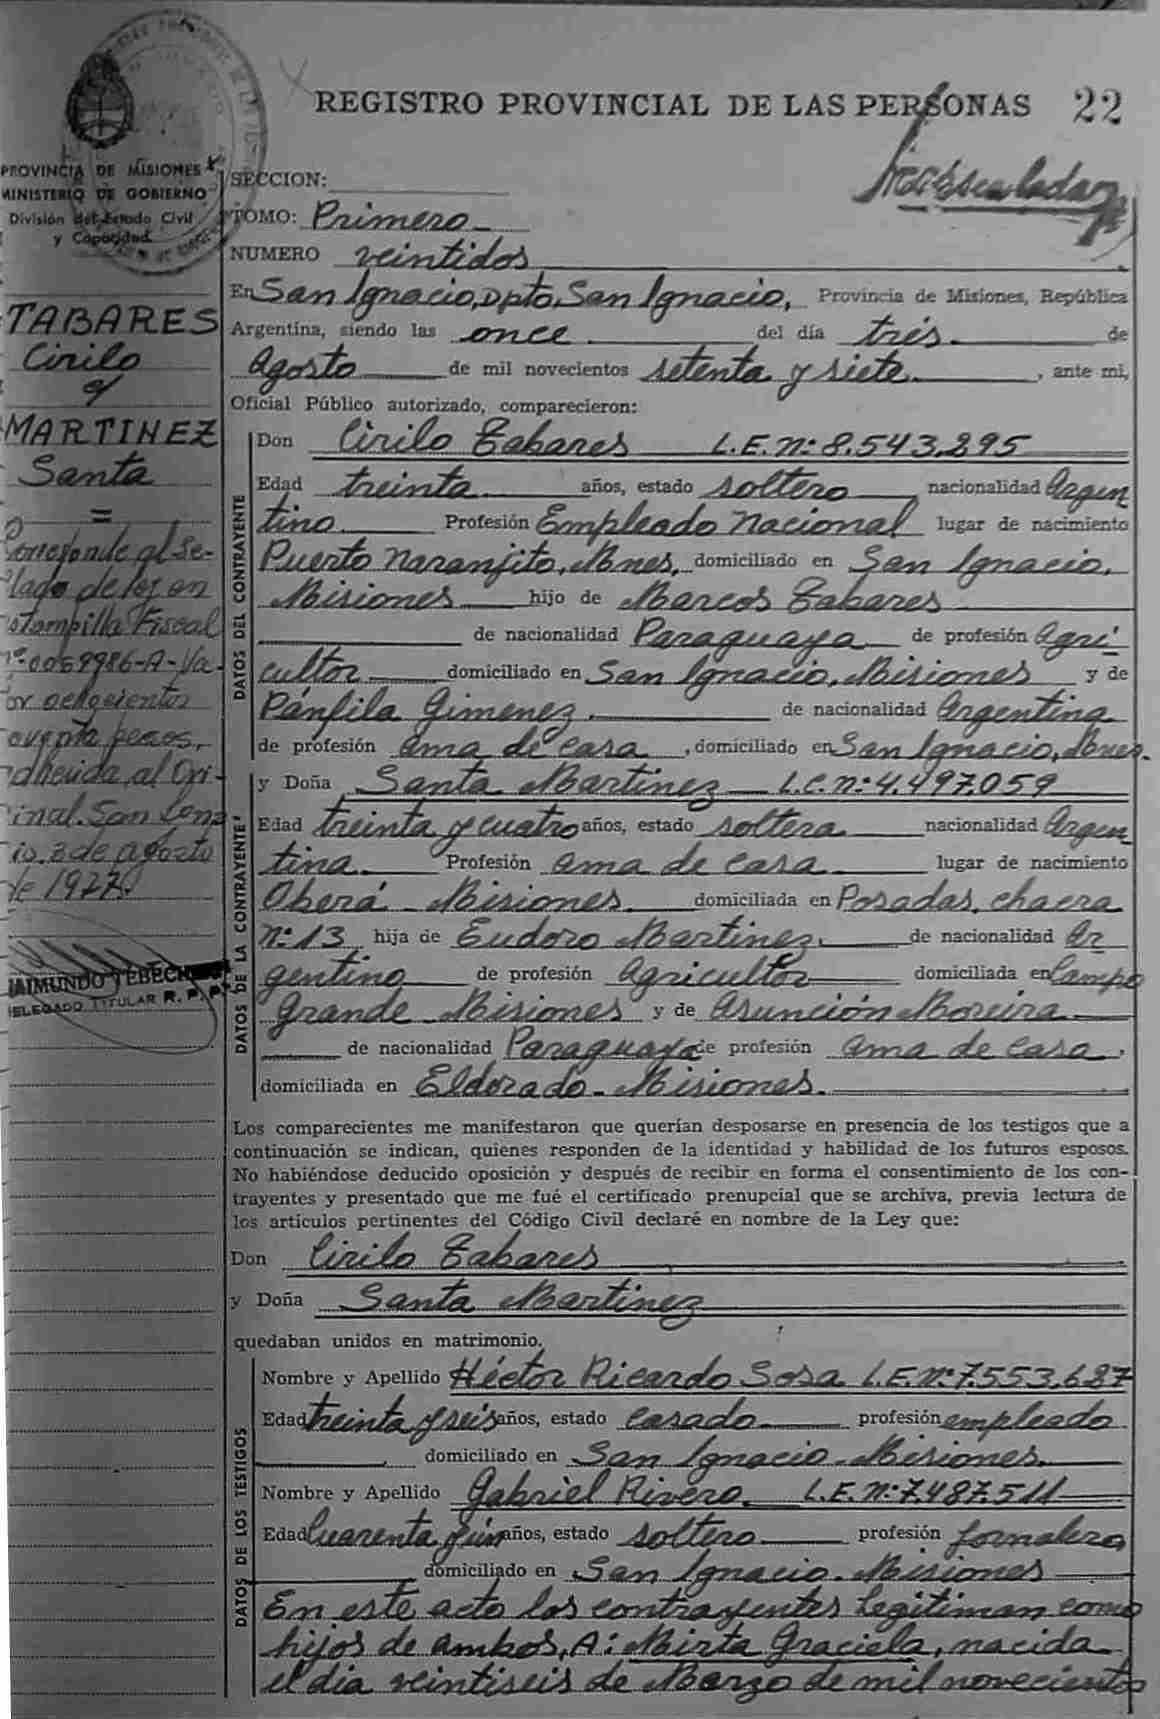 REGISTRO PROVINCIAL DE LAS PERSONAS 22
PROVINCIA DE MISIONES
MINISTERIO DE GOBIERNO
División del Estado Civil
y Capacidad
TABARES
Cirilo
c/
MARTINEZ
Santa
=
Corresponde al Se-
llado de ley en
Estampilla Fiscal
nº 0059986-A-Va-
lor ochocientos
pesos,
adherida al Ori-
ginal. San Igna
cio, 3 de agosto
de 1977.
RAIMUNDO
DELEGADO TITULAR R. P. P.
SECCION:
TOMO: Primero
NUMERO veintidos
En San Ignacio, Dpto, San Ignacio, Provincia de Misiones, República
Argentina, siendo las once del día trés de
Agosto de mil novecientos setenta y siete, ante mi,
Oficial Público autorizado, comparecieron:
DATOS DEL CONTRAYENTE
Don Cirilo Tabares L.E. nº: 8.543.295
Edad treinta años, estado soltero nacionalidad Argen
tino Profesión Empleado Nacional lugar de nacimiento
Puerto Naranjito, Mnes, domiciliado en San Ignacio,
Misiones hijo de Marcos Tabares
de nacionalidad Paraguaya de profesión Agri
cultor domiciliado en San Ignacio, Misiones y de
Pánfila Gimenez de nacionalidad Argentina
de profesión ama de casa, domiciliado en San Ignacio, Mnes.
DATOS DE LA CONTRAYENTE
y Doña Santa Martinez L.C. nº: 4.497.059
Edad treinta y cuatro años, estado soltera nacionalidad Argen
tina Profesión ama de casa lugar de nacimiento
Oberá - Misiones domiciliada en Posadas, chacra
nº: 13 hija de Eudoro Martinez de nacionalidad Ar
gentino de profesión Agricultor domiciliada en Campo
Grande Misiones y de Asunción Moreira
de nacionalidad Paraguaya de profesión ama de casa,
domiciliada en Eldorado - Misiones.
Los comparecientes me manifestaron que querían desposarse en presencia de los testigos que a
continuación se indican, quienes responden de la identidad y habilidad de los futuros esposos.
No habiéndose deducido oposición y después de recibir en forma el consentimiento de los con-
trayentes y presentado que me fué el certificado prenupcial que se archiva, previa lectura de
los artículos pertinentes del Código Civil declaré en nombre de la Ley que:
Don Cirilo Tabares
y Doña Santa Martinez
quedaban unidos en matrimonio.
DATOS DE LOS TESTIGOS
Nombre y Apellido Héctor Ricardo Sosa L.E. Nº: 7.553.687
Edad treinta y seis años, estado casado profesión empleado
domiciliado en San Ignacio - Misiones
Nombre y Apellido Gabriel Rivero L.E. nº: 7.487.511
Edad Cuarenta y un años, estado soltero profesión Jornalero
domiciliado en San Ignacio - Misiones
En este acto los contrayentes legitiman como
hijos de ambos, A: Mirta Graciela, nacida
el día veintiseis de Marzo de mil novecientos